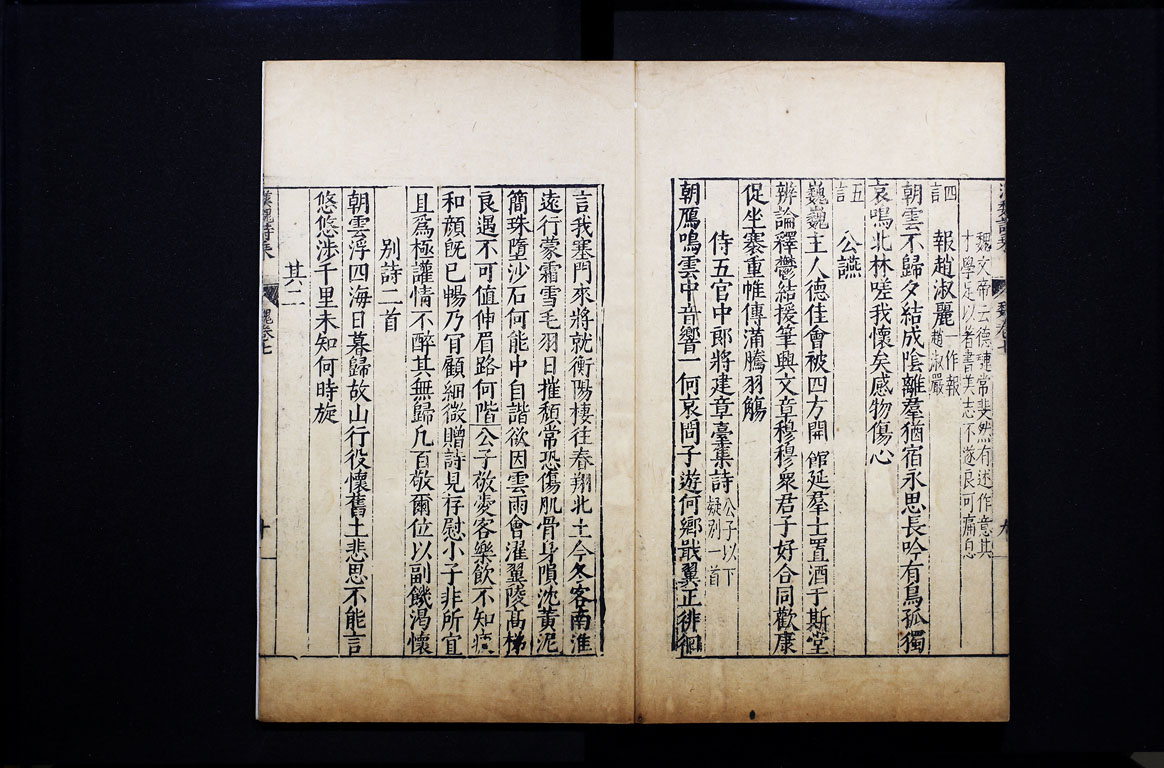 魏文帝云德璉常斐然有述作意其
才學足以著書美志不遂良可痛惜
四言
報趙淑麗
一作報
趙淑嚴
朝雲不歸夕結成陰離羣猶宿永思長吟有鳥孤獨
哀鳴北林嗟我懷矣感物傷心
五言
公讌
巍巍主人德佳會被四方開館延羣士置酒于斯堂
辨論釋鬱結援筆興文章穆穆衆君子好合同歡康
促坐褰重帷傳滿騰羽觴
侍五官中郎將建章臺集詩
公子以下
疑別一首
朝鴈鳴雲中音響一何哀問子遊何鄉戢翼正徘徊
言我塞門來將就衡陽棲往春翔北土今冬客南淮
遠行蒙霜雪毛羽日摧頹常恐傷肌骨身隕沈黃泥
簡珠墮沙石何能中自諧欲因雲雨會濯翼陵高梯
良遇不可值伸眉路何階公子敬愛客樂飲不知疲
和顏旣已暢乃肯顧細微贈詩見存慰小子非所宜
且爲極讙情不醉其無歸凢百敬爾位以副饑渴懷
別詩二首
朝雲浮四海日暮歸故山行役懷舊土悲思不能言
悠悠涉千里未知何時旋
其二
漢魏詩乗
魏卷七
十